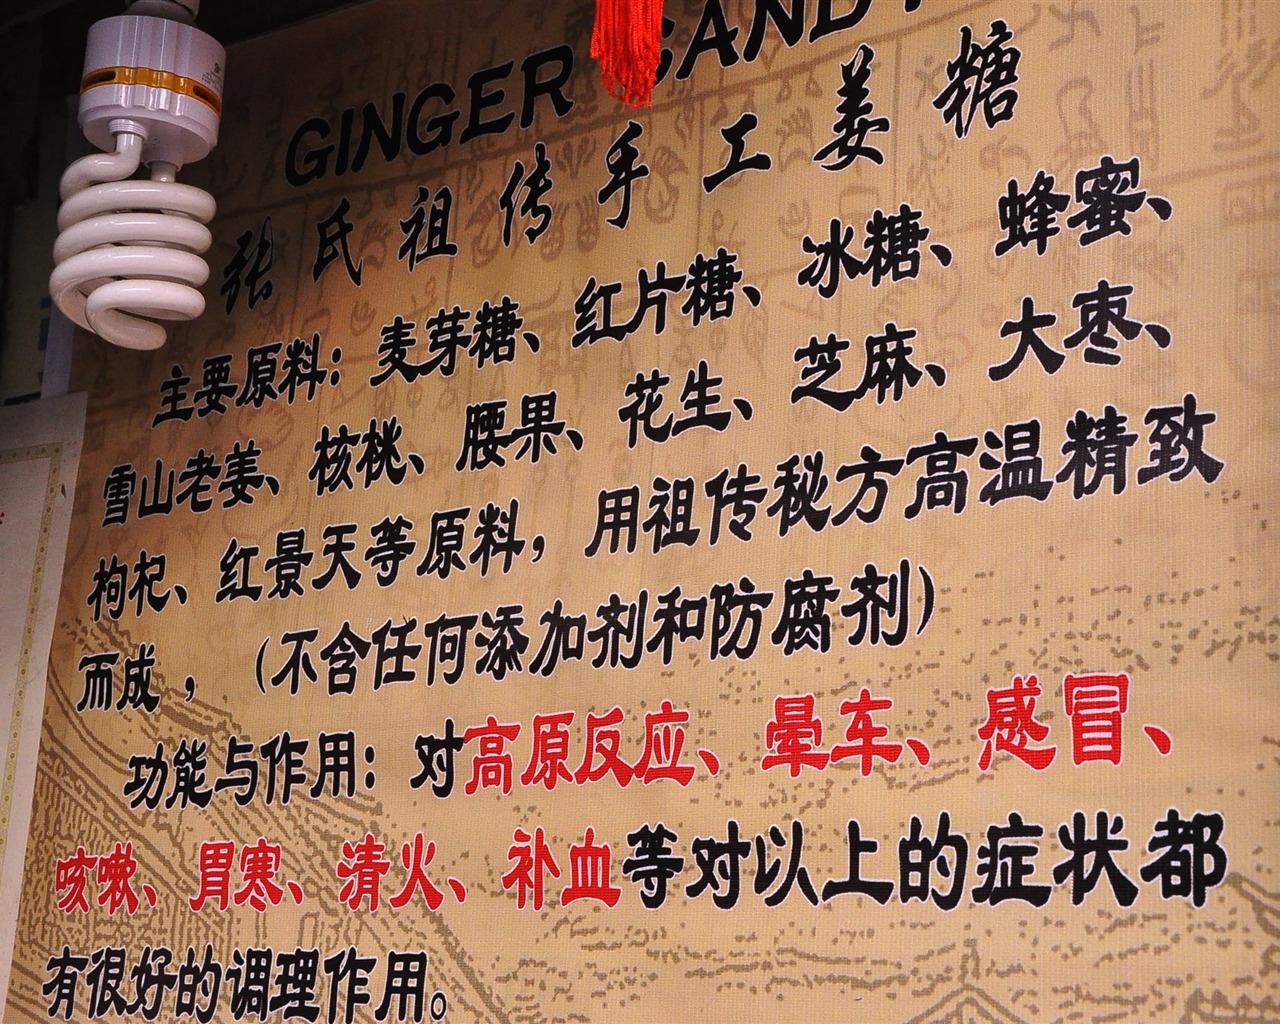 GINGER CANDY
张氏祖传手工姜糖
主要原料：麦芽糖、红片糖、冰糖、蜂蜜、
雪山老姜、核桃、腰果、花生、芝麻、大枣、
枸杞、红景天等原料，用祖传秘方高温精致
而成，（不含任何添加剂和防腐剂）
功能与作用：对高原反应、晕车、感冒、
咳嗽、胃寒、清火、补血等对以上的症状都
有很好的调理作用。